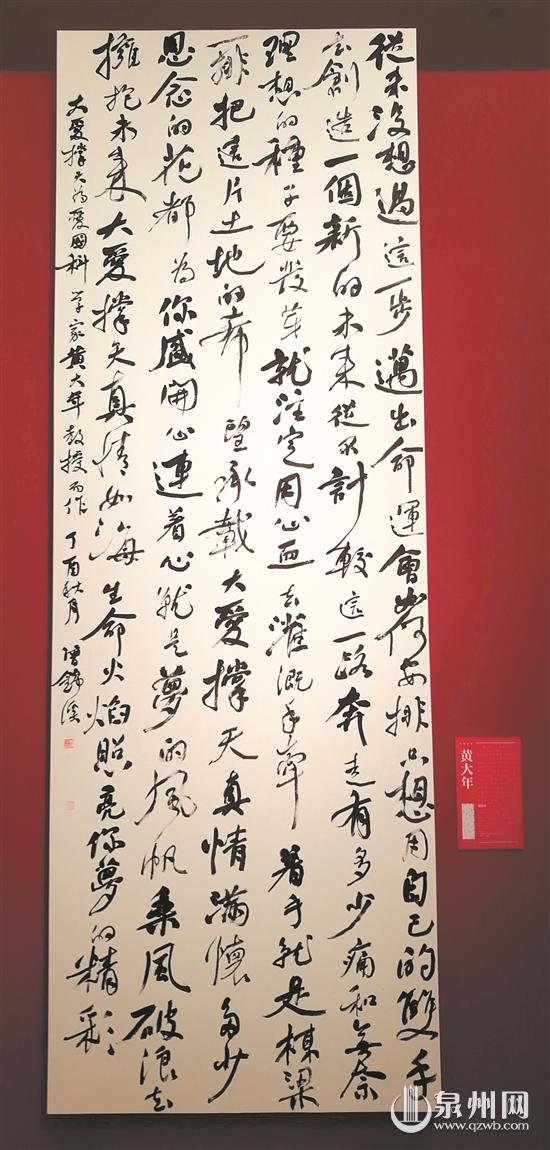 從来没想過這一步邁出命運會如何安排只想用自己的雙手
去創造一個新的未来從不計較這一路奔走有多少痛和無奈
理想的種子要發芽就注定用心血去灌溉手牽着手就是棟梁
一排把這片土地的希望承載大愛撐天真情滿懷多少
思念的花都為你盛開心連着心就是夢的風帆乘風破浪去
擁抱未来大愛撐天真情如海生命火焰照亮你夢的精彩
大愛撐天為愛國科学家黄大年教授而作 丁酉秋月
黄大年
泉州网
www.qzwb.com